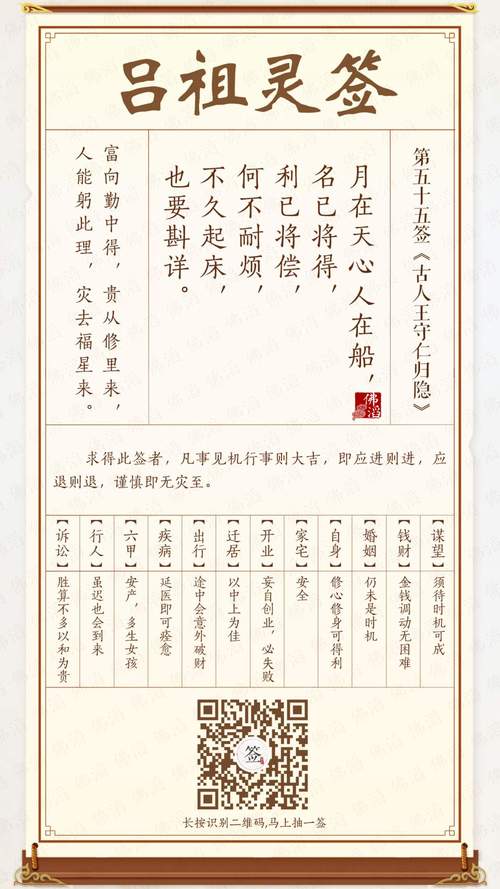 吕祖灵签
第五十五签《古人王守仁归隐》
月在天心人在船，
名已将得，
利已将偿，
何不耐烦，
不久起床，
也要斟详。
佛滔
富向勤中得，贵从修里来，
人能躬此理，灾去福星来。
求得此签者，凡事见机行事则大吉，即应进则进，应
退则退，谨慎即无灾至。
【谋望】
须待时机可成
【钱财】
金钱调动无困难
【婚姻】
仍未是时机
【自身】
修心修身可得利
【家宅】
安全
【开业】
妄自创业，必失败
【迁居】
以中上为佳
【出行】
途中会意外破财
【疾病】
延医即可痊愈
【六甲】
安产，多生女孩
【行人】
虽迟也会到来
【诉讼】
胜算不多以和为贵
签
长按识别二维码,马上抽一签